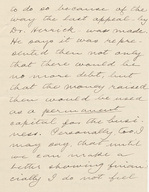 to do so because of the
way the last appeal by
Dr. Herrick was made.
He says it was repre-
sented then not only
that there would be
no more debt, but
that the money raised
then would be used
as a permanent
capital for the busi-
ness. Personally too I
may say, that until
we can make a
better showing finan-
cially I do not feel